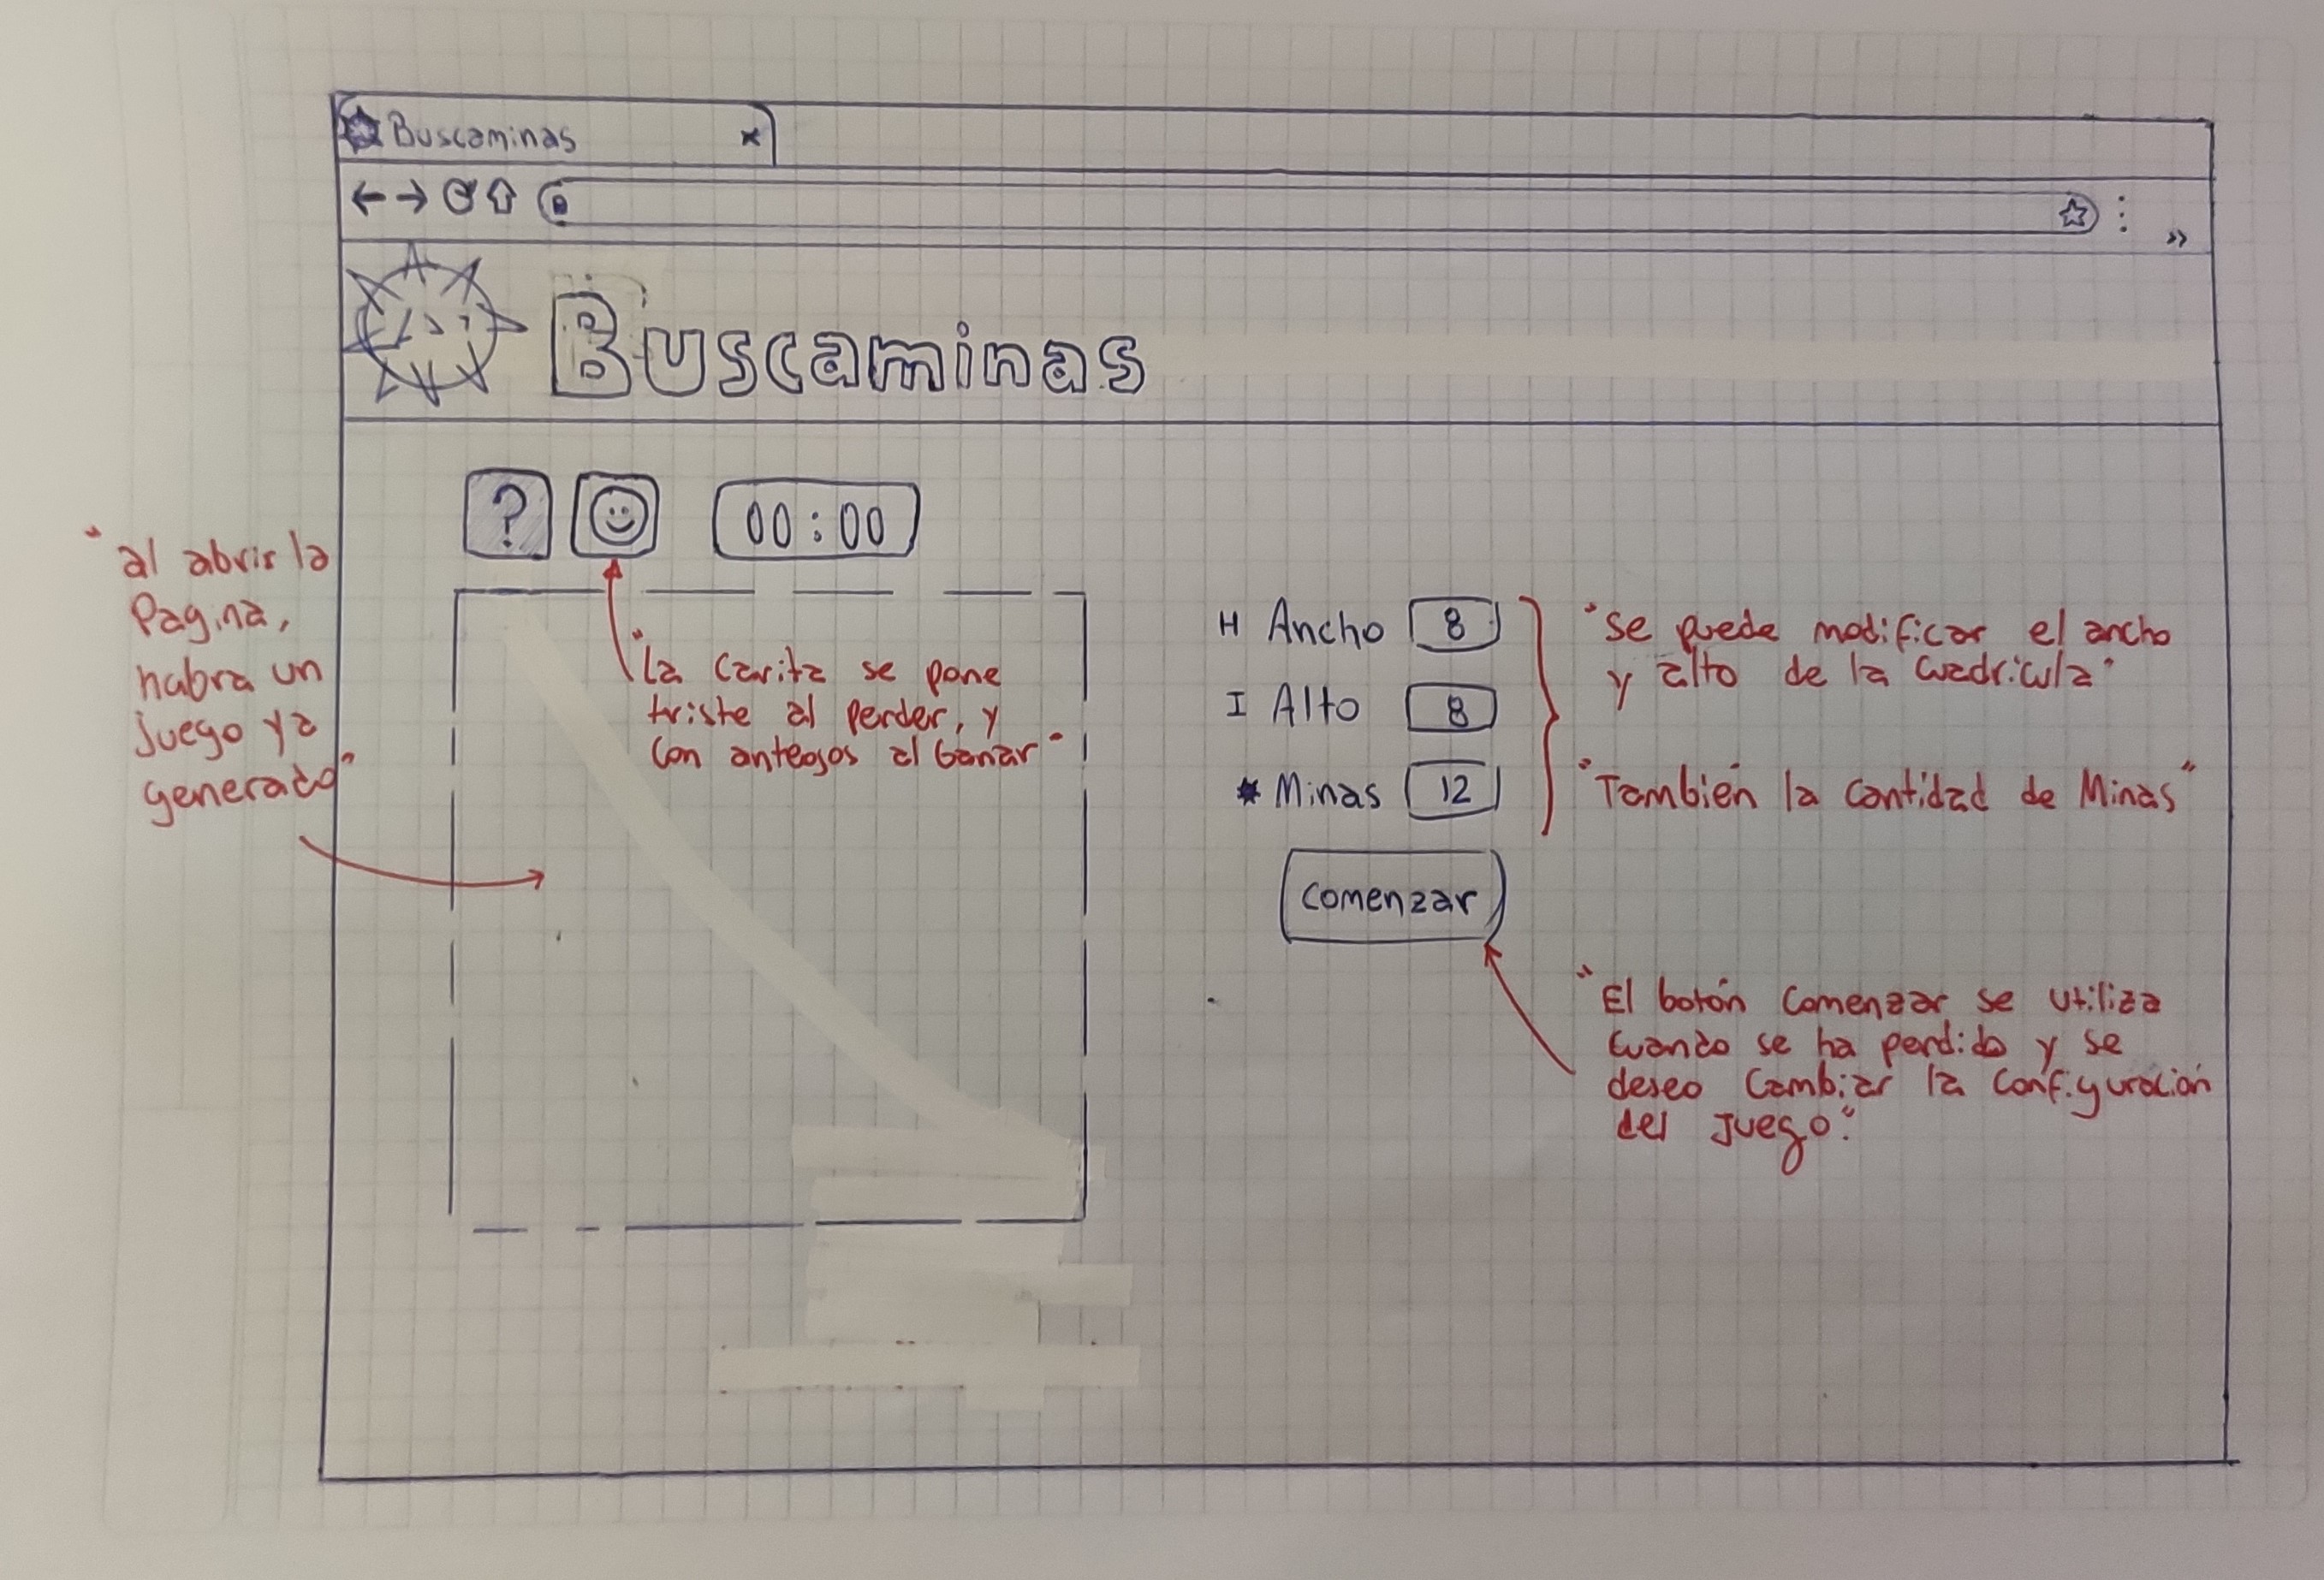 Buscaminas x
Buscaminas
? 00:00
"al abrir la
Pagina,
habra un
juego ya
generado"
"la carita se pone
triste al perder, y
con anteojos al Ganar"
H Ancho 8
I Alto 8
* Minas 12
"se puede modificar el ancho
y alto de la cuadricula"
"También la cantidad de Minas"
comenzar
"El botón comenzar se utiliza
cuando se ha perdido y se
deseo cambiar la configuración
del juego."